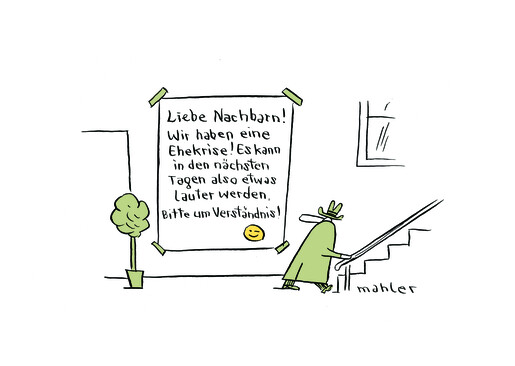 Liebe Nachbarn!
Wir haben eine
Ehekrise! Es kann
in den nächsten
Tagen also etwas
lauter werden.
Bitte um Verständnis!
mahler